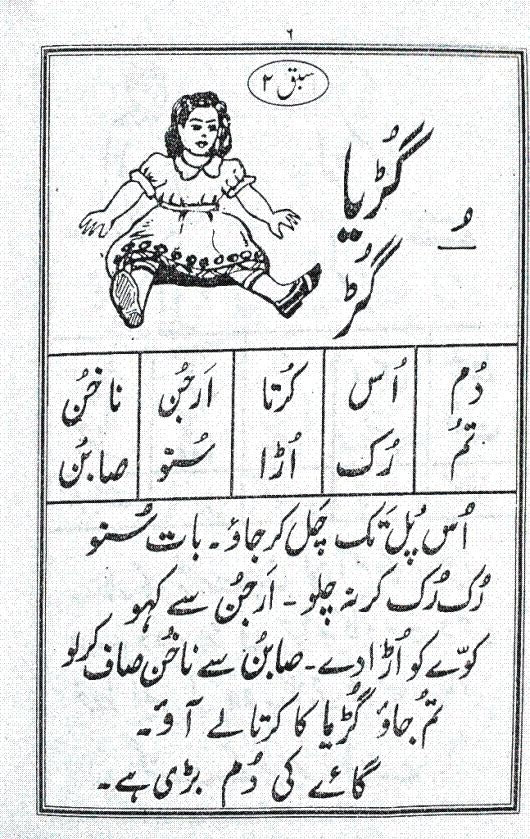 ۶
سبق ۲
گُڑیا
ـُ
گُڑ
دُم اُس کُرتا اَرجُن ناخُن
تُم رُک اُڑا سُنو صابُن
اُس پُل تَک چَل کر جاؤ۔ بات سُنو
رُک رُک کر نہ چلو ۔ اَرجُن سے کہو
کوّے کو اُڑا دے۔ صابُن سے ناخُن صاف کرلو
تُم جاؤ گُڑیا کا کرتا لے آؤ۔
گائے کی دُم بڑی ہے۔